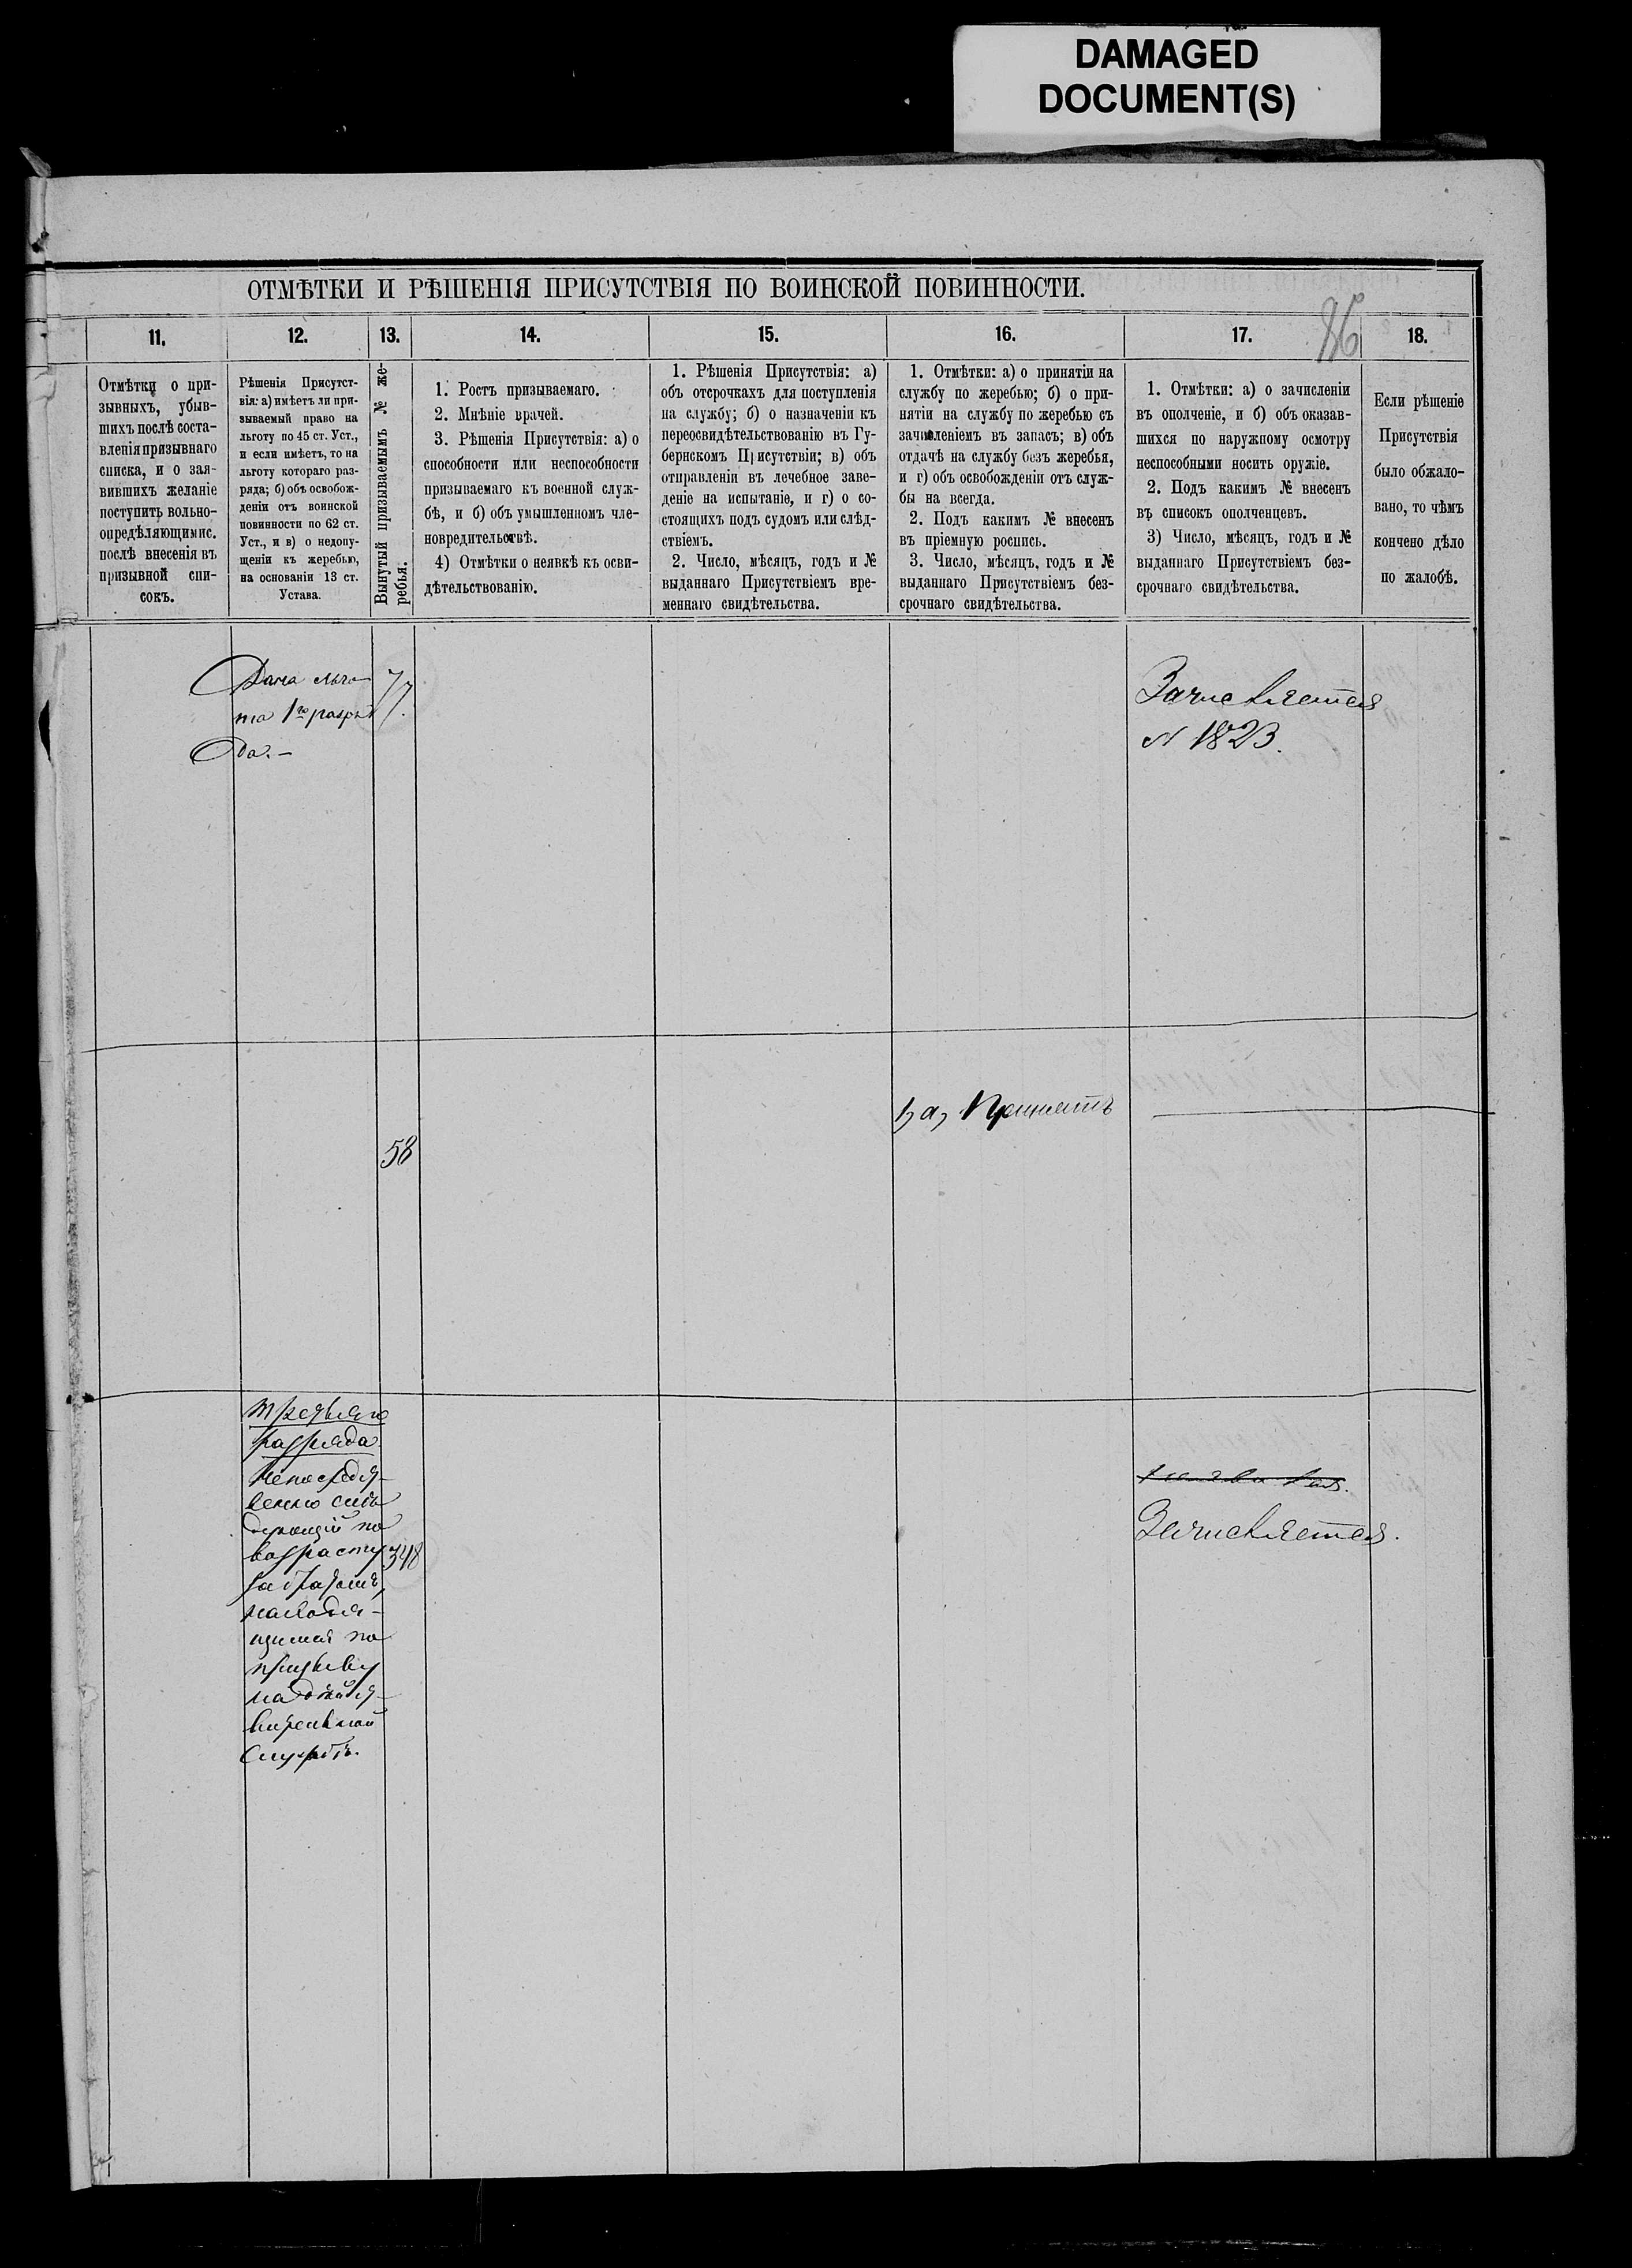 DAMAGED
DOCUMENT(S)
ОТМѢТКИ И РѢШЕНІЯ ПРИСУТСТВІЯ ПО ВОИНСКОЙ ПОВИННОСТИ.
86
11.
12.
13.
14.
15.
16.
17.
18.
Отмѣтки о при-
зывныхъ, убыв-
шихъ послѣ соста-
вленія призывнаго
списка, и о зая-
вившихъ желаніе
поступить вольно-
опредѣляющимис.
послѣ внесенія въ
призывной спи-
сокъ.
Рѣшенія Присутст-
вія: а) имѣетъ ли при-
зываемый право на
льготу по 45 ст. Уст.,
и если имѣетъ, то на
льготу котораго раз-
ряда; б) объ освобож-
деніи отъ воинской
повинности по 62 ст.
Уст., и в) о недопу-
щеніи къ жеребью,
на основаніи 13 ст.
Устава.
Вынутый призываемымъ № же-
ребья.
1. Ростъ призываемаго.
2. Мнѣніе врачей.
3. Рѣшенія Присутствія: а) о
способности или неспособности
призываемаго къ военной служ-
бѣ, и б) объ умышленномъ чле-
новредительствѣ.
4) Отмѣтки о неявкѣ къ осви-
дѣтельствованію.
1. Рѣшенія Присутствія: а)
объ отсрочкахъ для поступленія
на службу; б) о назначеніи къ
переосвидѣтельствованію въ Гу-
бернскомъ Присутствіи; в) объ
отправленіи въ лечебное заве-
деніе на испытаніе, и г) о со-
стоящихъ подъ судомъ или слѣд-
ствіемъ.
2. Число, мѣсяцъ, годъ и №
выданнаго Присутствіемъ вре-
меннаго свидѣтельства.
1. Отмѣтки: а) о принятіи на
службу по жеребью; б) о при-
нятіи на службу по жеребью съ
зачисленіемъ въ запасъ; в) объ
отдачѣ на службу безъ жеребья,
и г) объ освобожденіи отъ служ-
бы на всегда.
2. Подъ какимъ № внесенъ
въ пріемную роспись.
3. Число, мѣсяцъ, годъ и №
выданнаго Присутствіемъ без-
срочнаго свидѣтельства.
1. Отмѣтки: а) о зачисленіи
въ ополченіе, и б) объ оказав-
шихся по наружному осмотру
неспособными носить оружіе.
2. Подъ какимъ № внесенъ
въ списокъ ополченцевъ.
3) Число, мѣсяцъ, годъ и №
выданнаго Присутствіемъ без-
срочнаго свидѣтельства.
Если рѣшеніе
Присутствія
было обжало-
вано, то чѣмъ
кончено дѣло
по жалобѣ.
Дана льго-
та 1го разря
да.-
77.
Зачисляется
N 1823.
58
1, а, Принятъ
третьяго
разряда
непосредст-
венно слѣ
дующій по
возрасту
за братомъ,
находя-
щимся по
призыву
на дѣйст-
вительной
службѣ.
348
Зачисляется.